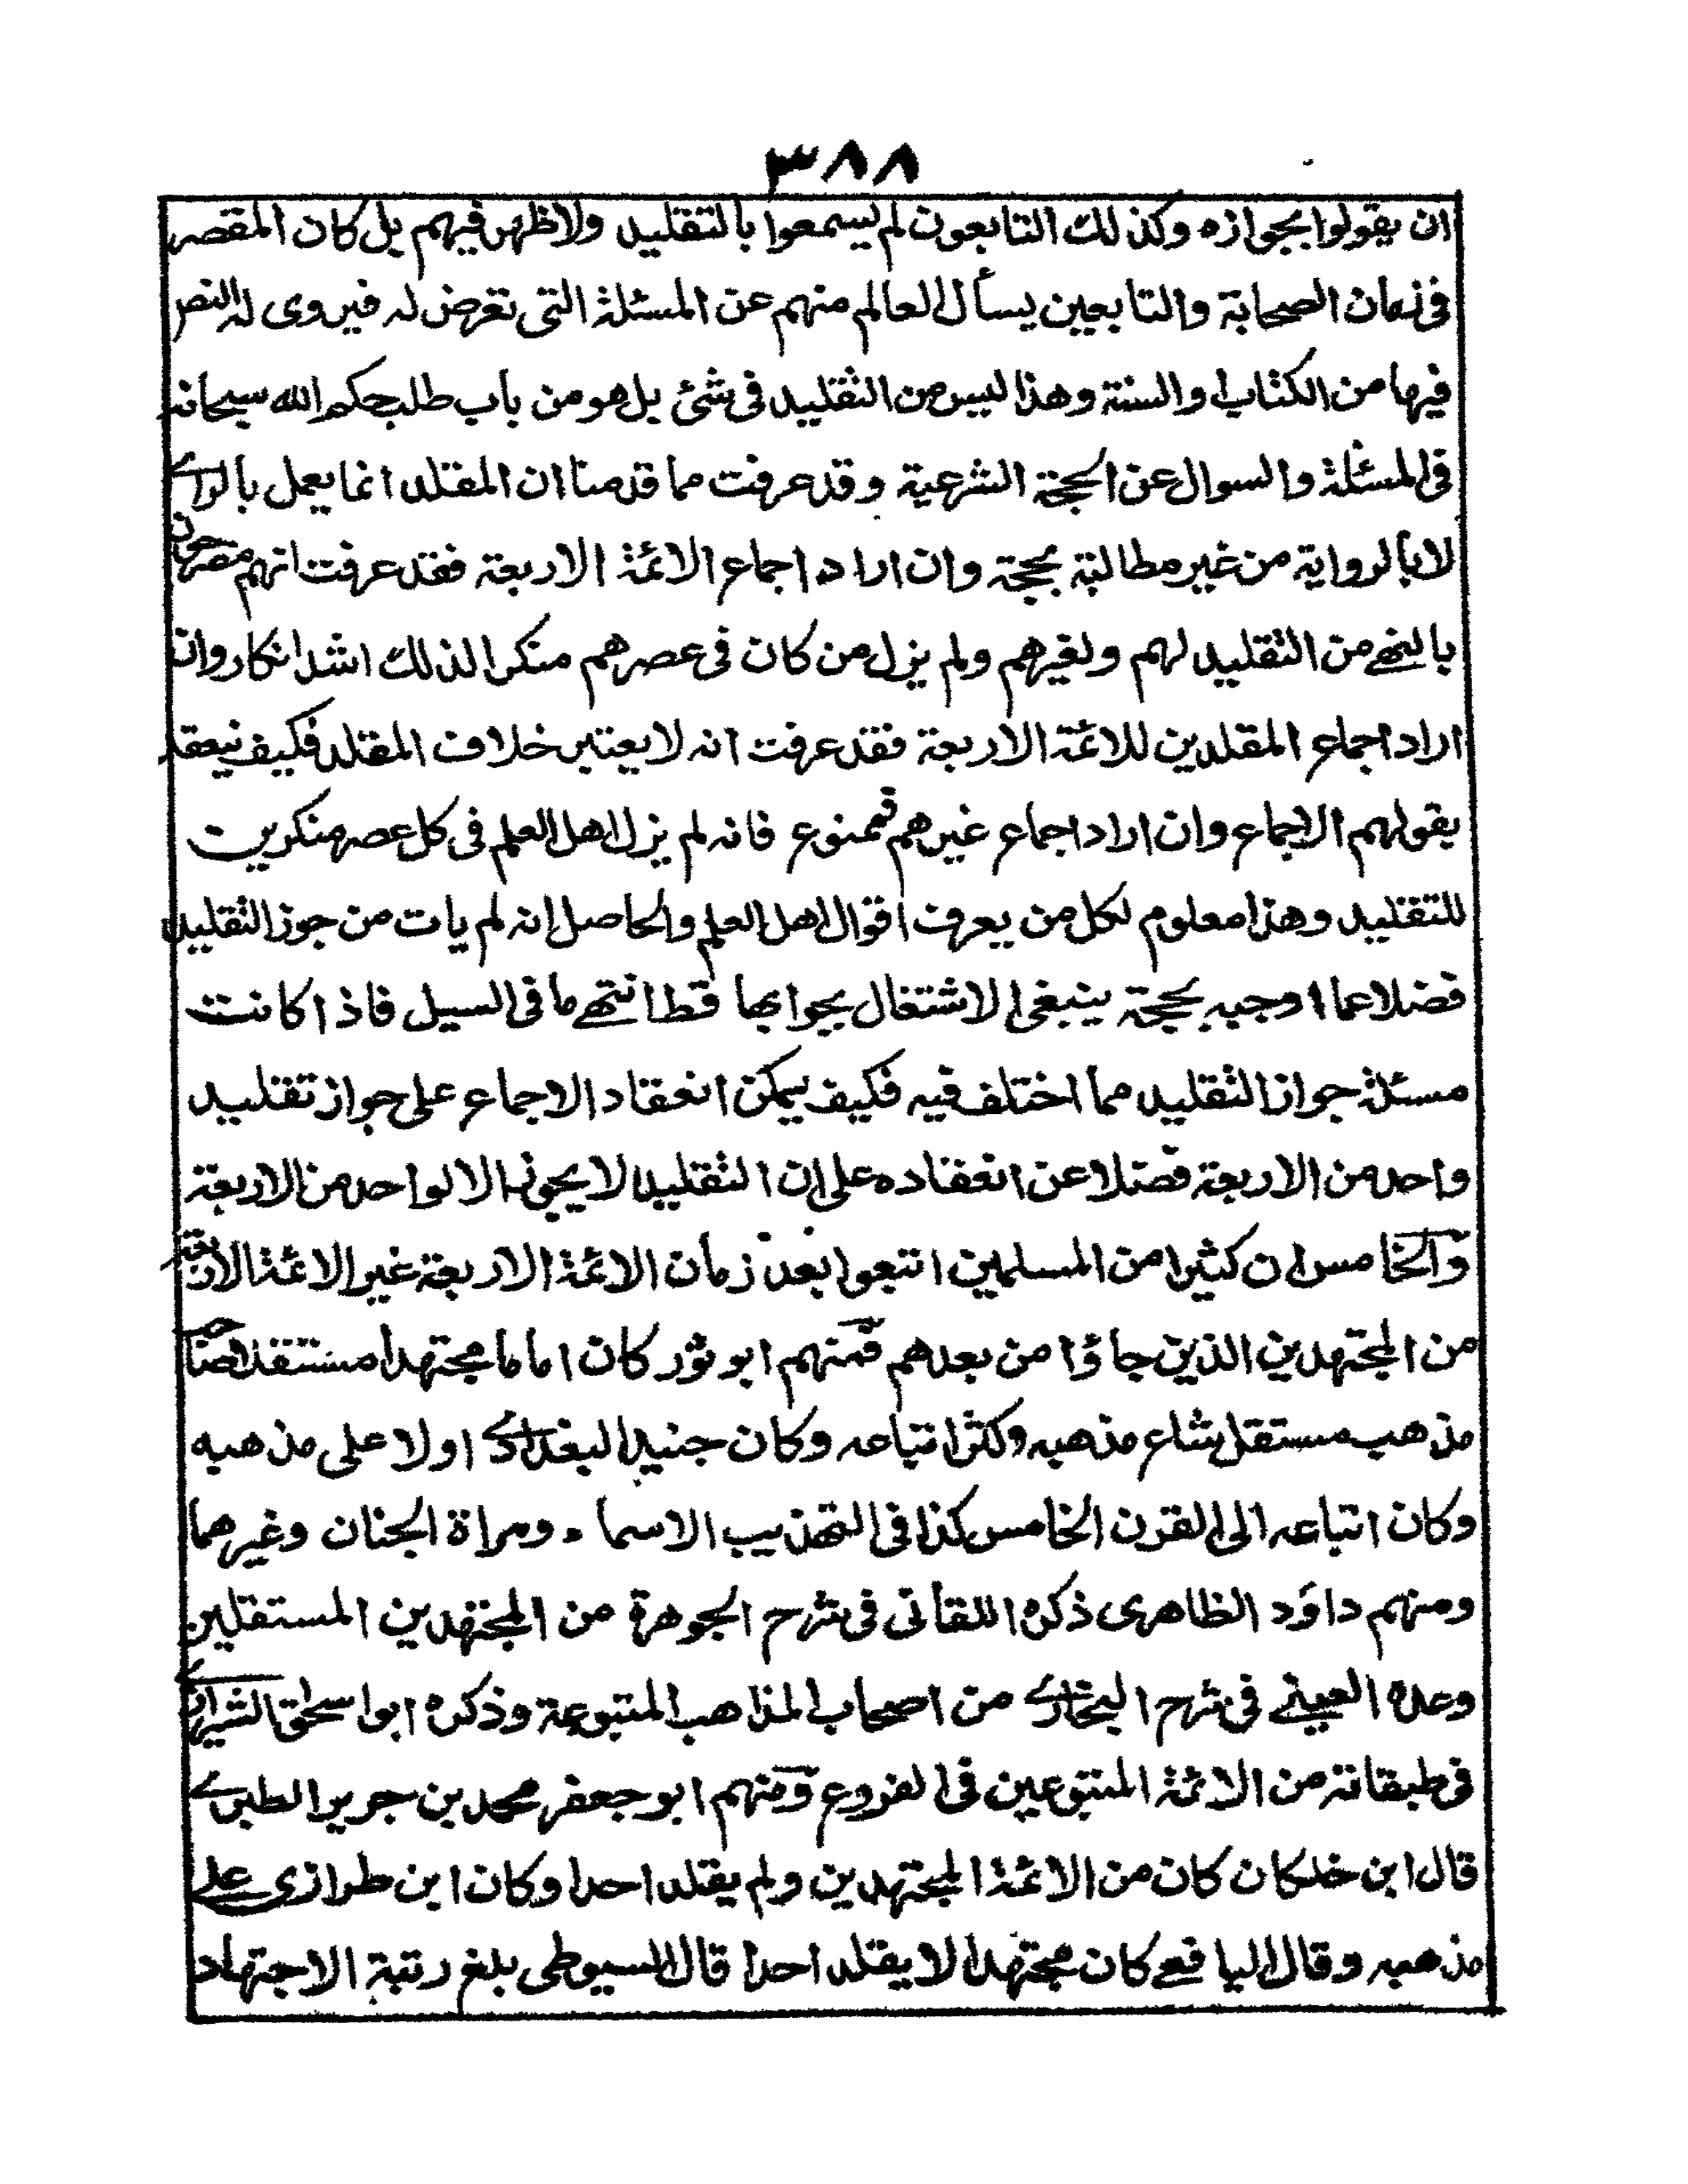 ٣٨٨
ان يقولوا بجوازه وكذلك التابعون لم يسمعوا بالتقليد ولا ظهر فيهم بل كان المقصر
فى زمان الصحابة والتابعين يسأل العالم منهم عن المسئلة التى تعرض له فيروى له النص
فيها من الكتاب والسنة وهذا ليس من التقليد فى شئ بل هو من باب طلب حكم الله سبحانه
فى المسئلة والسوال عن الحجة الشرعية وقد عرفت مما قدمنا ان المقلد انما يعمل بالراے
لا بالرواية من غير مطالبة بحجة وان اراد اجماع الائمة الاربعة فقد عرفت انهم مصرحون
بالنهے من التقليد لهم ولغيرهم ولم يزل من كان فى عصرهم منكرا لذلك اشد انكار وان
اراد اجماع المقلدين للائمة الاربعة فقد عرفت انه لا يعتبر خلاف المقلد فكيف ينعقد
بقولهم الاجماع وان اراد اجماع غيرهم فممنوع فانه لم يزل اهل العلم فى كل عصر منكرين
للتقليد وهذا معلوم لكل من يعرف اقوال اهل العلم والحاصل انه لم يات من جوز التقليد
فضلا عما اوجبه بحجة ينبغى الاشتغال بجوابها قط انتهے ما فى السيل فاذا كانت
مسئلة جواز التقليد مما اختلف فيه فكيف يمكن انعقاد الاجماع على جواز تقليد
واحد من الاربعة فضلا عن انعقاده على ان التقليد لا يجوز الا لواحد من الاربعة
والخامس ان كثيرا من المسلمين اتبعوا بعد زمان الائمة الاربعة غير الائمة الاربعة
من المجتهدين الذين جاؤا من بعدهم فمنهم ابو ثور كان اماما مجتهدا مستقلا صاحب
مذهب مستقل شاع مذهبه وكثر اتباعه وكان جنيد البغدادے اولا على مذهبه
وكان اتباعه الى القرن الخامس كذا فى التهذيب الاسماء ومراة الجنان وغيرهما
ومنهم داود الظاهرى ذكره اللقانى فى شرح الجوهرة من المجتهدين المستقلين
وعده العينے فى شرح البخارے من اصحاب المذاهب المتبوعة وذكره ابو اسحق الشيرازے
فى طبقاته من الائمة المتبوعين فى الفروع ومنهم ابو جعفر محمد بن جرير الطبرے
قال ابن خلكان كان من الائمة المجتهدين ولم يقلد احدا وكان ابن طرازى علے
مذهبه وقال اليافعے كان مجتهدا لا يقلد احدا قال السيوطى بلغ رتبة الاجتهاد